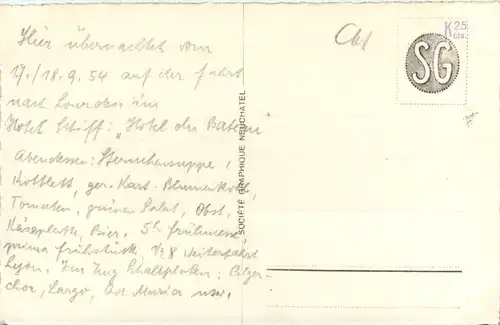 Hier übernachtet vom
17./18.9.54 auf der Fahrt
nach Lourdes im
Hotel Schiff: "Hotel du Bateau"
Abendessen: Sternchensuppe,
Kottlett, ger. Kart. Blumenkohl,
Tomaten, grünen Salat, Obst,
Käseplatte, Bier. 5h Frühmesse
prima Frühstück, 1/2 8 Weiterfahrt
Lyon. Im Zug Schallplatten: Pilger-
chor, Largo, Ave Maria usw.
SOCIÉTÉ GRAPHIQUE NEUCHATEL
K 25
SG